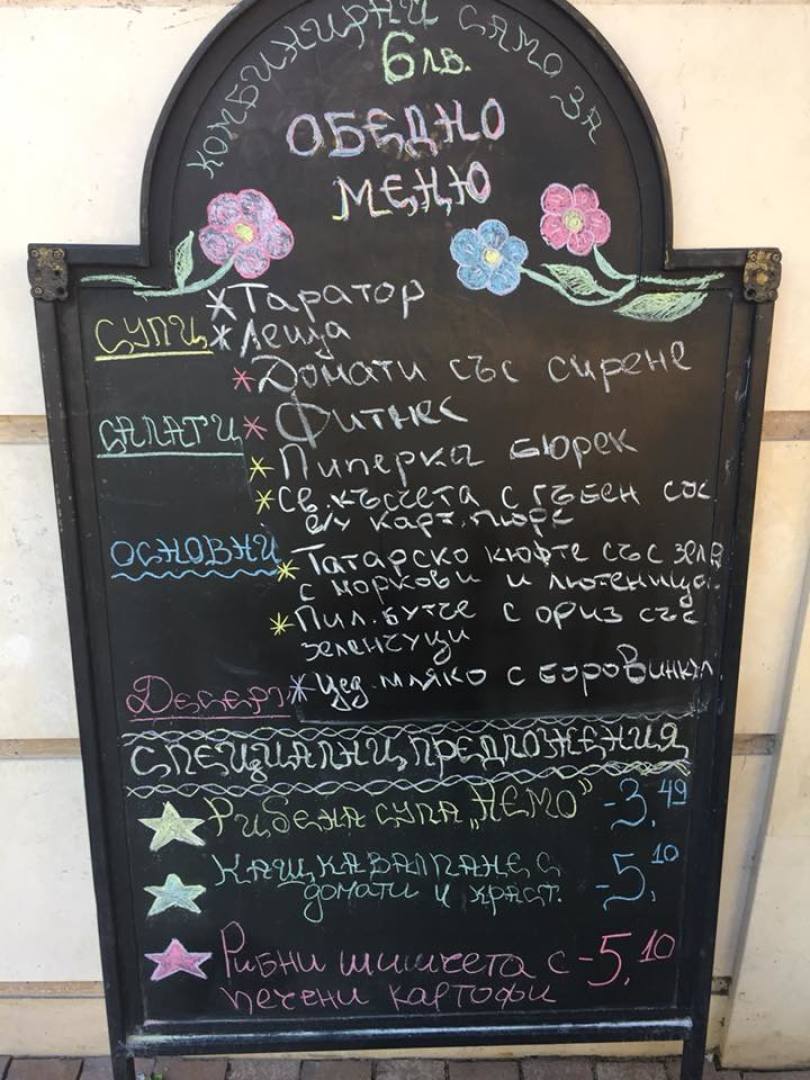 КОМБИНИРАЙ САМО ЗА
6 лв.
ОБЕДНО
МЕНЮ
СУПИ
* Таратор
* Леща
САЛАТИ
* Домати със сирене
* Фитнес
* Пиперка бюрек
ОСНОВНИ
* Св. късчета с гъбен сос
карт. пюре
* Татарско кюфте със зеле
с моркови и лютеница
* Пил. бутче с ориз със
зеленчуци
Десерт
* Цед. мляко с боровинки
СПЕЦИАЛНИ ПРЕДЛОЖЕНИЯ
Рибена супа „НЕМО” -3,49
Кашкавал пане с
домати и краст. -5,10
Рибни шишчета с -5,10
печени картофи